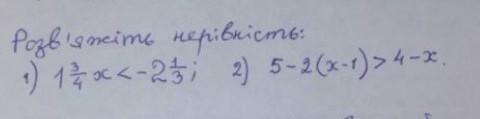 Розв'яжіть нерівність:
1) 1 3/4 x < -2 1/3; 2) 5-2(x-1) > 4-x.